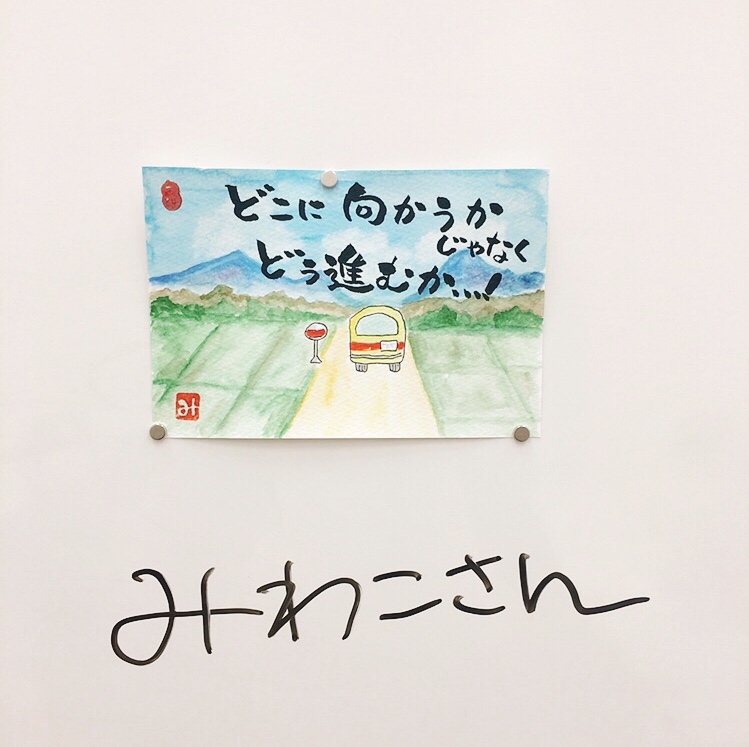 どこに向かうか
じゃなく
どう進むか…!
み
みわこさん